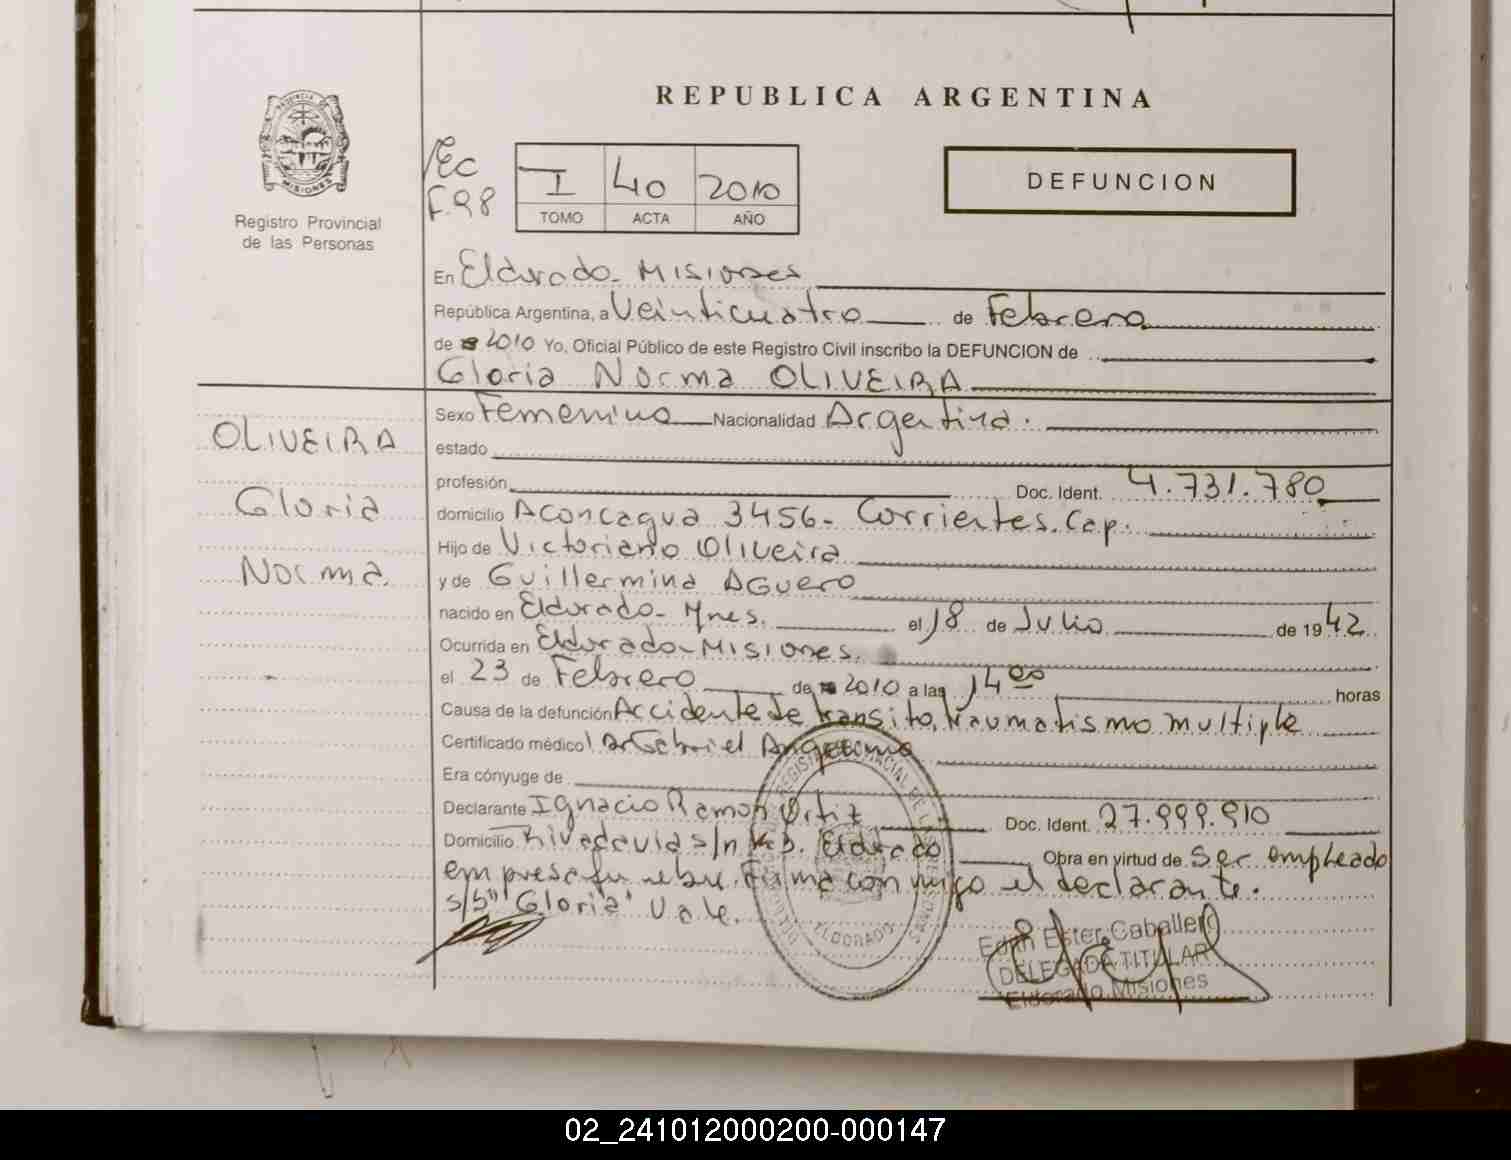 REPUBLICA ARGENTINA
PROVINCIA DE
MISIONES
Registro Provincial
de las Personas
F.98
I 40 2010
TOMO ACTA AÑO
DEFUNCION
En Eldorado - Misiones
República Argentina, a Veinticuatro de Febrero
de 2010 Yo, Oficial Público de este Registro Civil inscribo la DEFUNCION de
Gloria Norma OLIVEIRA
OLIVEIRA
Gloria
Norma.
Sexo Femenino Nacionalidad Argentina.
estado
profesión Doc. Ident. 4.731.780
domicilio Aconcagua 3456 - Corrientes. Cap.
Hijo de Victoriano Oliveira
y de Guillermina Aguero
nacido en Eldorado - Mnes. el 18 de Julio de 1942
Ocurrida en Eldorado - Misiones.
el 23 de Febrero de 2010 a las 14 00 horas
Causa de la defunción Accidente de transito, traumatismo multiple
Certificado médico
Era cónyuge de
Declarante Ignacio Ramon Ortiz Doc. Ident. 27.999.910
Domicilio Rivadavia s/n Eldorado Obra en virtud de Ser empleado
empresa funebre. Firma conmigo el declarante.
s/b "Gloria" Vale.
ELDORADO
Edith Ester Caballero
DELEGADA TITULAR
Eldorado Misiones
02_241012000200-000147